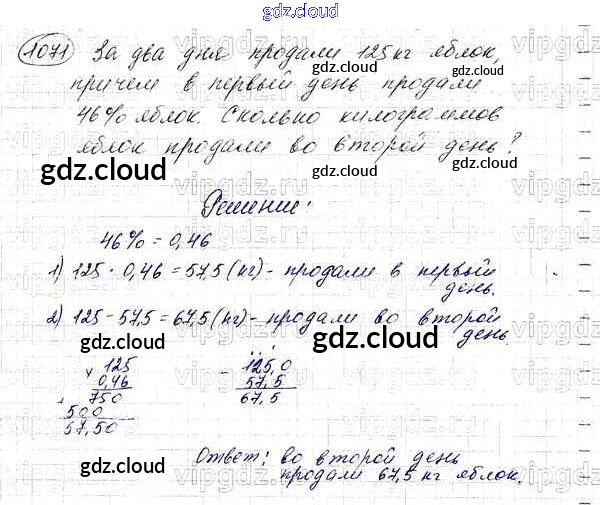 gdz.cloud
1071 За два дня продали 125 кг яблок,
причем в первый день продали
46% яблок. Сколько килограммов
яблок продали во второй день?
gdz.cloud
gdz.cloud
gdz.cloud
Решение:
46% = 0,46
1) 125 · 0,46 = 57,5 (кг) - продали в первый
день.
2) 125 - 57,5 = 67,5 (кг) - продали во второй
день
gdz.cloud
× 125
0,46
+ 750
500
57,50
- 125,0
57,5
67,5
Ответ: во второй день
продали 67,5 кг яблок.
gdz.cloud
gdz.cloud
vipgdz.ru